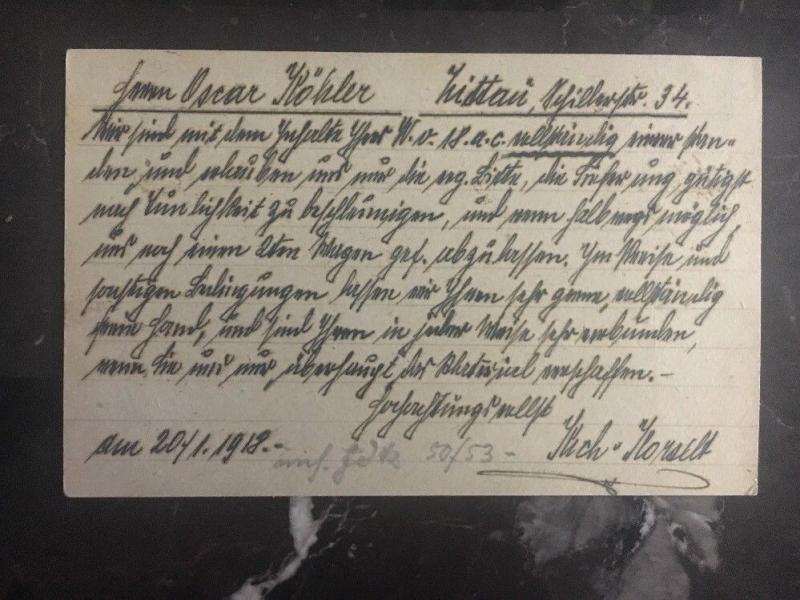 Herrn Oscar Köhler Zittau, Schillerstr. 34.
Wir sind mit dem Inhalte Ihres W. v. 18. a. c. vollständig einverstan-
den, und erlauben uns nur die erg. Bitte, die Lieferung gütigst
nach Tunlichkeit zu beschleunigen, und wenn halbwegs möglich,
uns noch einen 2ten Wagen gef. abzulassen. Im Preise und
sonstigen Bedingungen lassen wir Ihnen sehr gerne, vollständig
freie Hand, und sind Ihnen in jeder Weise sehr verbunden,
wenn Sie uns nur überhaupt das Material verschaffen.-
Hochachtungsvollst
am 20/1. 1918.-
50/53 -